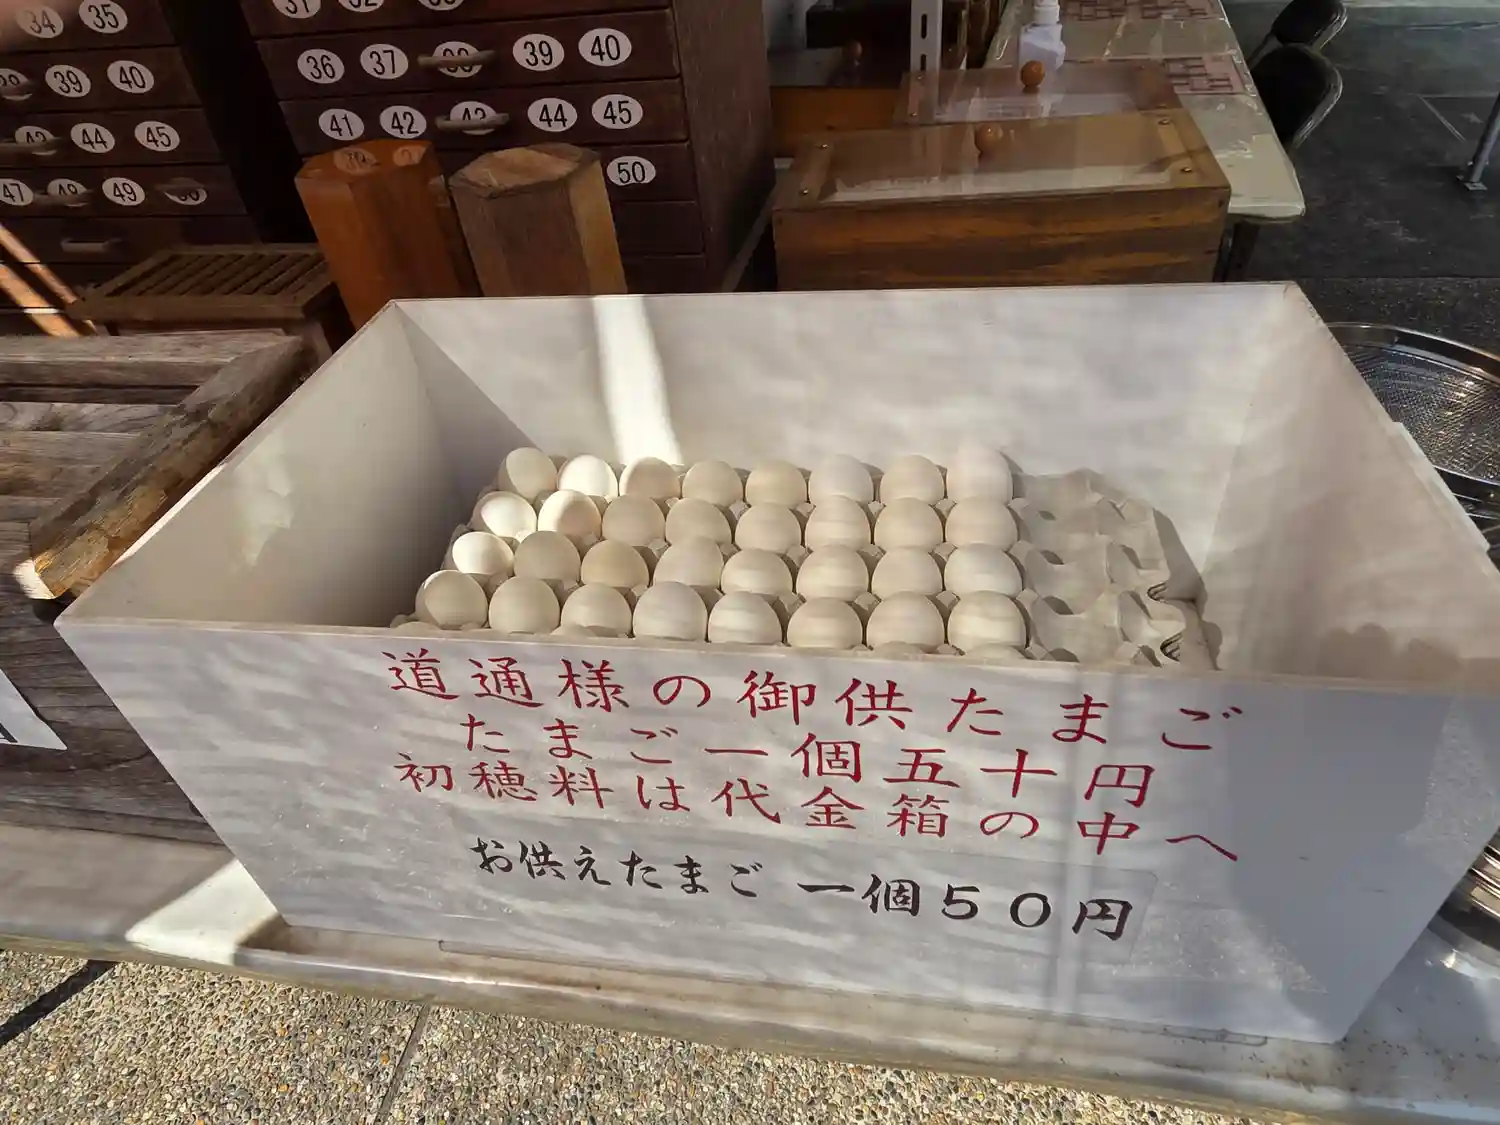 34 35
39 40
43 44 45
47 48 49 50
31 32 33
36 37 38 39 40
41 42 43 44 45
50
道通様の御供たまご
たまご一個五十円
初穂料は代金箱の中へ
お供えたまご 一個50円